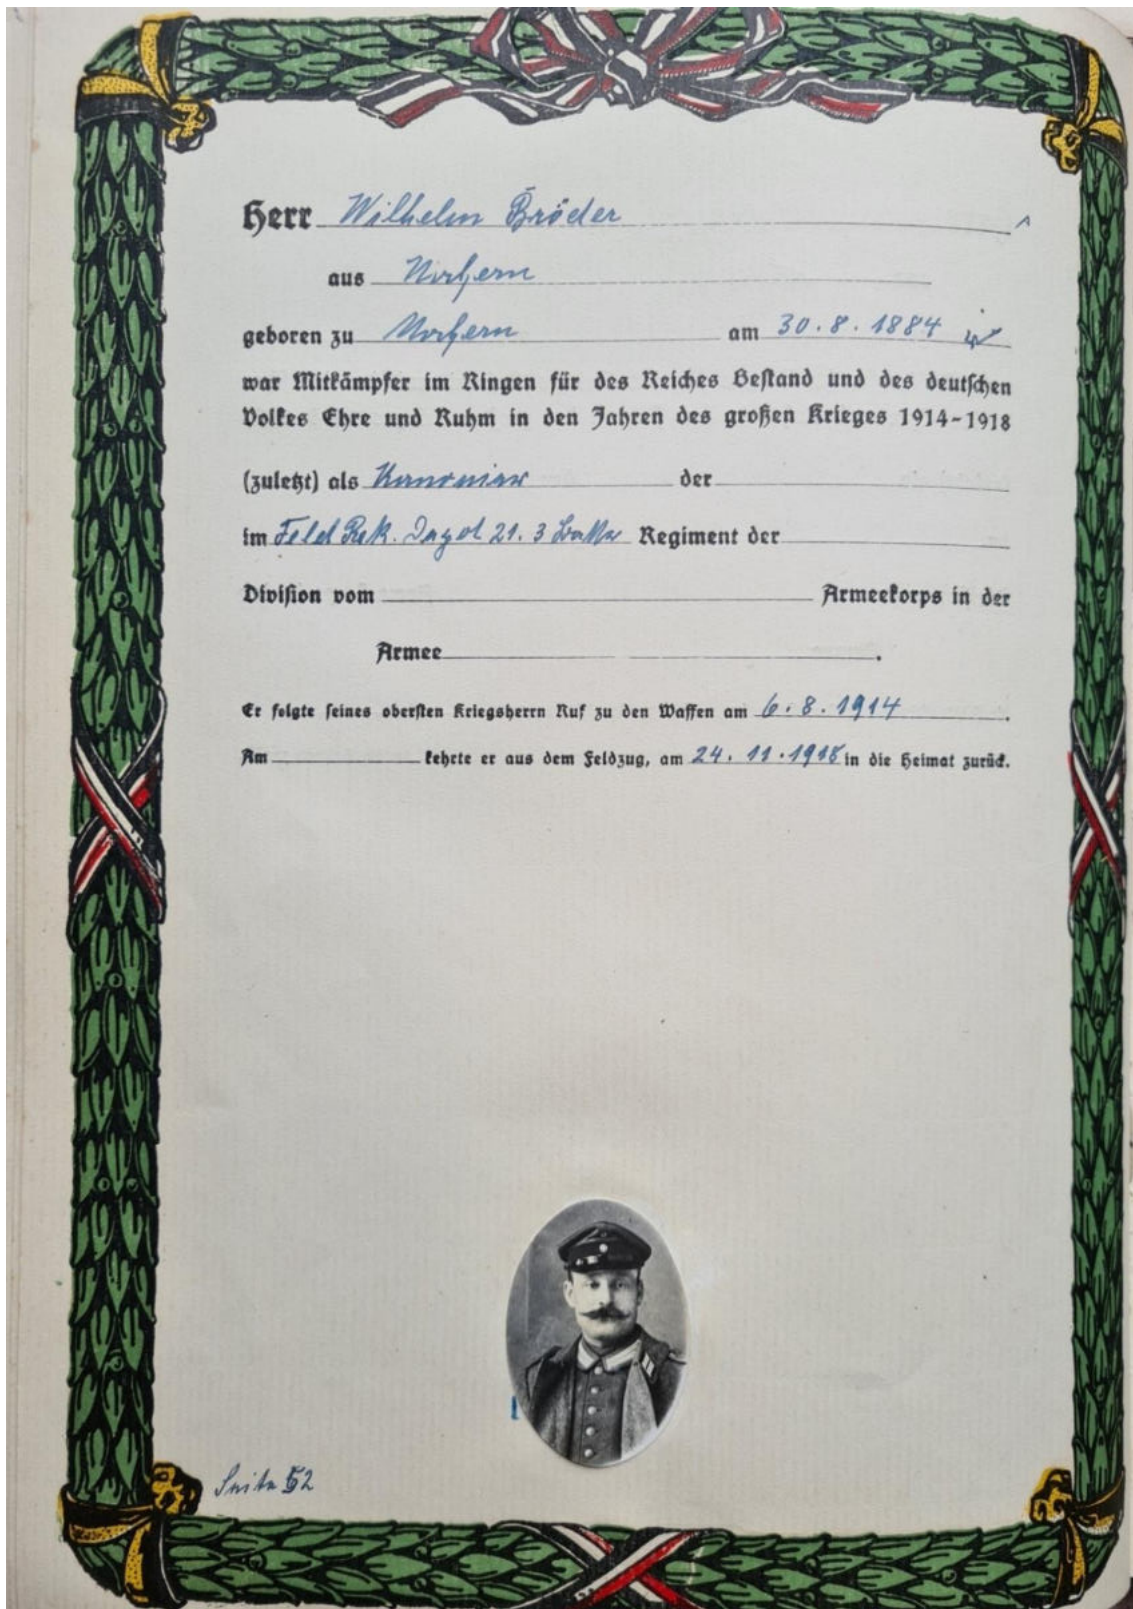 Herr Wilhelm Bröder
aus Nochern
geboren zu Nochern am 30.8.1884
war Mitkämpfer im Ringen für des Reiches Bestand und des deutschen
Volkes Ehre und Ruhm in den Jahren des großen Krieges 1914-1918
(zuletzt) als Kanonier der
im Feld Rek. 21. 3 Regiment der
Division vom Armeekorps in der
Armee.
Er folgte seines obersten Kriegsherrn Ruf zu den Waffen am 6.8.1914.
Am kehrte er aus dem Feldzug, am 24.11.1918 in die Heimat zurück.
Seite 52